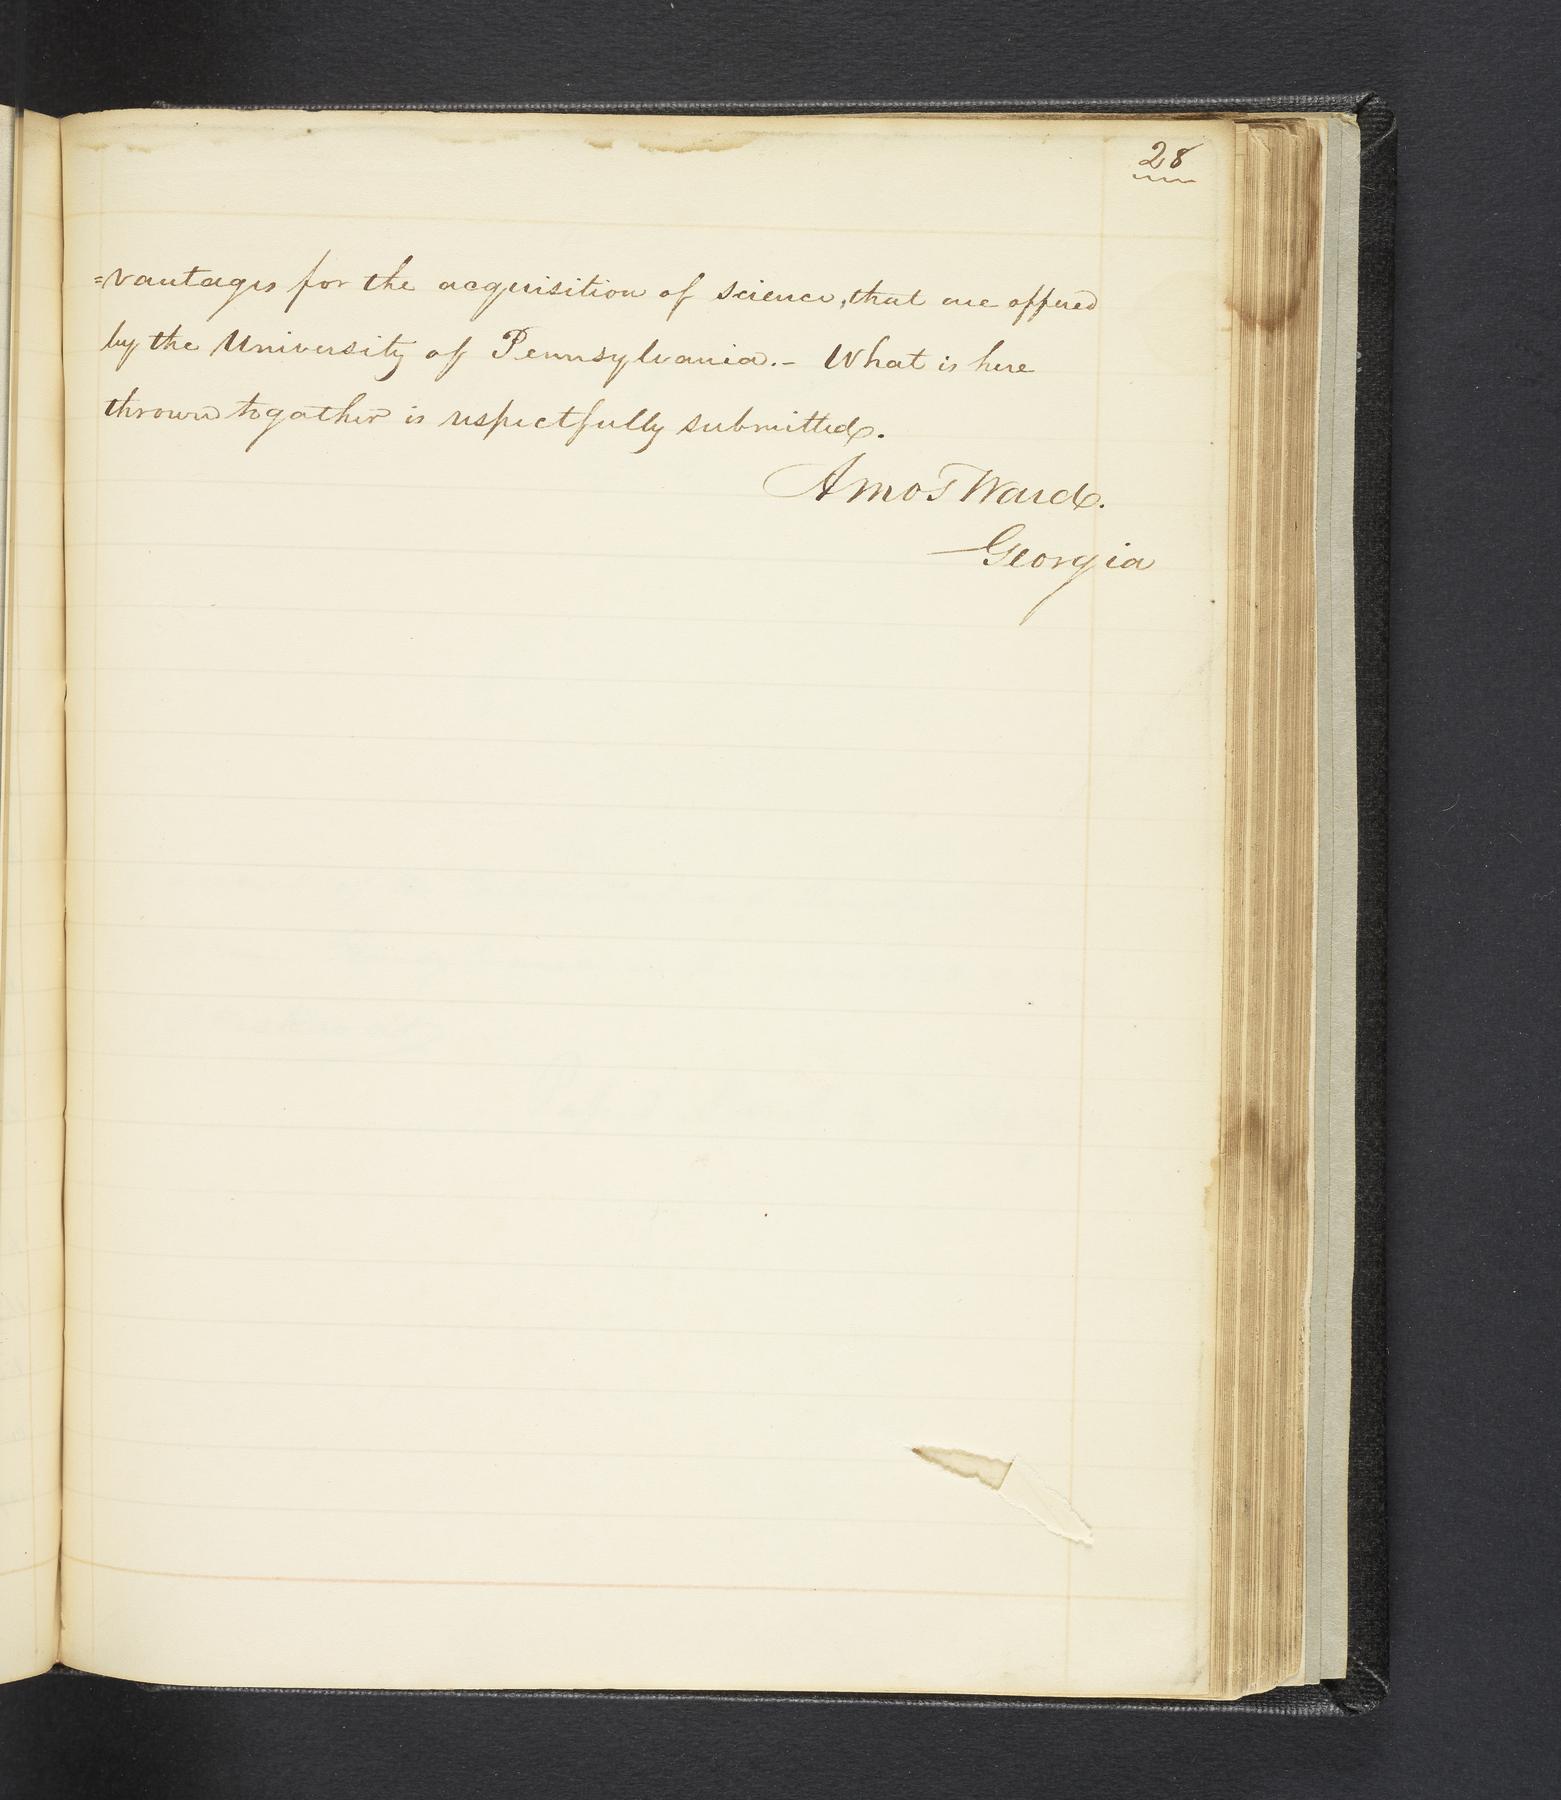 28
=vantages for the acquisition of science, that are offered
by the University of Pennsylvania.- What is here
thrown togather is respectfully submitted.
Amos Ward.
Georgia